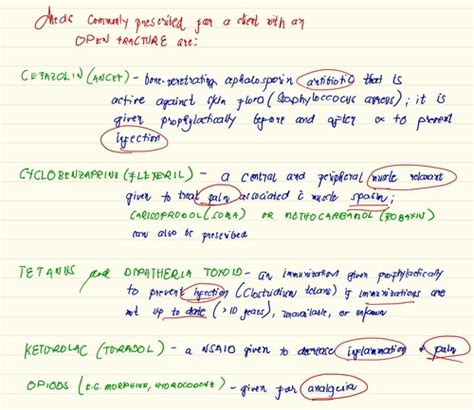 Meds commonly prescribed for a client with an
OPEN FRACTURE are:
CEFAZOLIN (ANCEF) - bone-penetrating cephalosporin antibiotic that is
active against skin flora (Staphylococcus aureus); it is
given prophylactically before and after sx to prevent
infection
CYCLOBENZAPRINE (FLEXERIL) - a central and peripheral muscle relaxant
given to treat pain associated c muscle spasm;
CARISOPRODOL (SOMA) OR METHOCARBAMOL (ROBAXIN)
can also be prescribed
TETANUS and DIPATHERIA TOXOID - an immunization given prophylactically
to prevent infection (Clostridium tetani) if immunizations are
not up to date (>10 years), unavailable, or unknown
KETOROLAC (TORADOL) - a NSAID given to decrease inflammation & pain
OPIODS (E.G. MORPHINE, HYDROCODONE) - given for analgesia